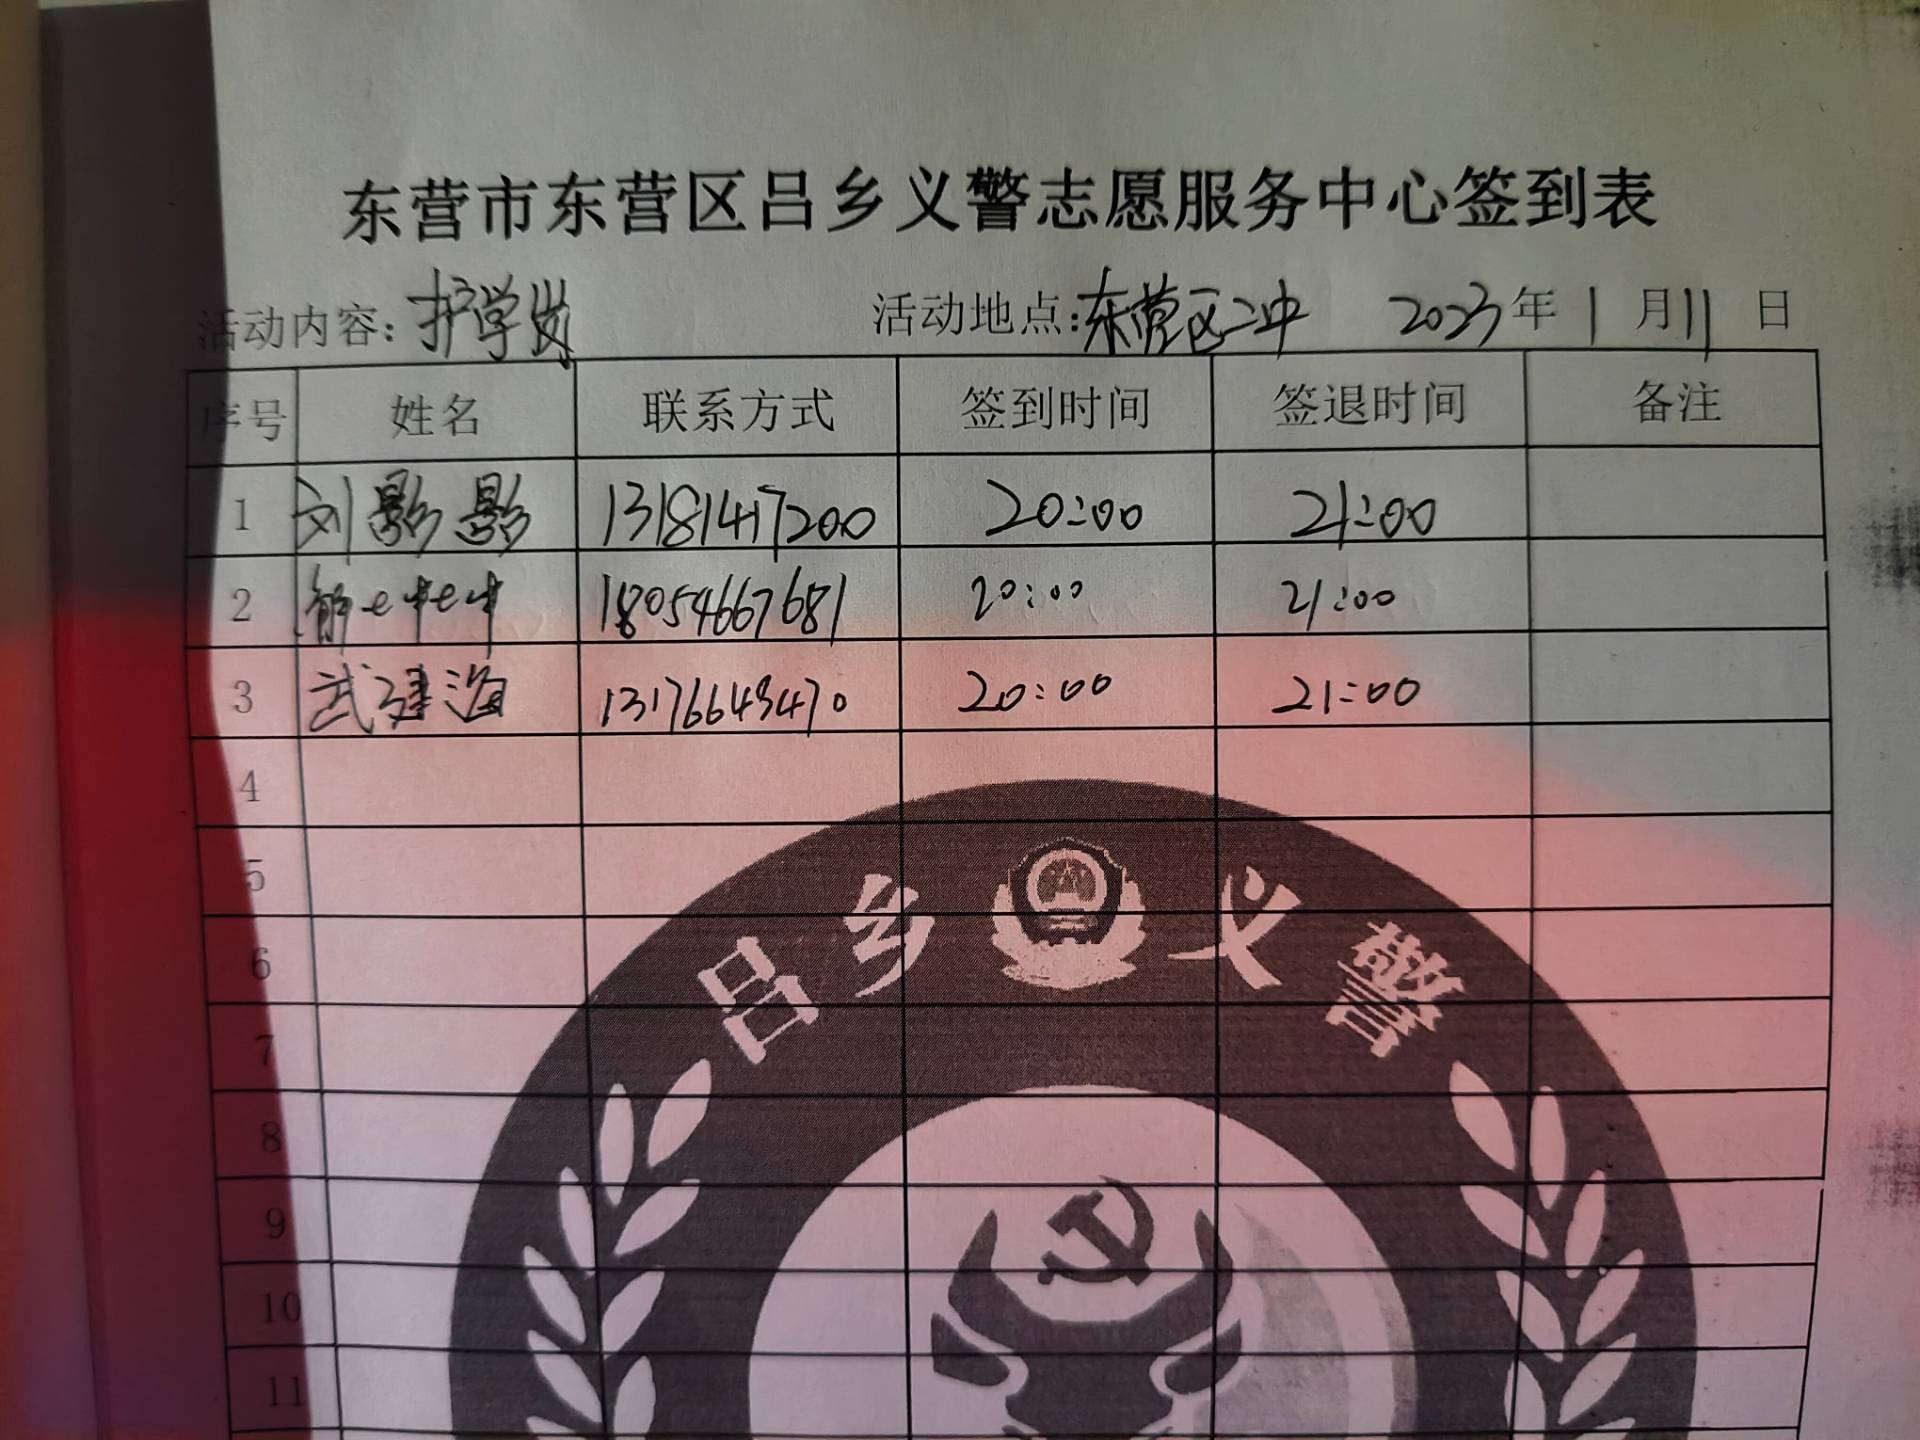 东营市东营区吕乡义警志愿服务中心签到表
活动内容：护学岗 活动地点：东营区二中 2023年1月11日
序号 姓名 联系方式 签到时间 签退时间 备注
1 刘影影 13181417200 20:00 21:00
2 18054667681 20:00 21:00
3 武建海 13176649470 20:00 21:00
4
5
6
7
8
9
10
11
吕乡义警